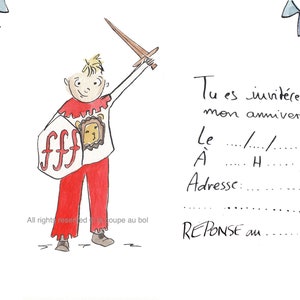 Tu es invité(e
mon anniver
Le ..../..../....
À ..... H .....
Adresse: .........
.................
REPONSE au .......
fff
All rights reserved la coupe au bol